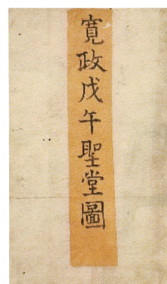 寛政戊午聖堂圖